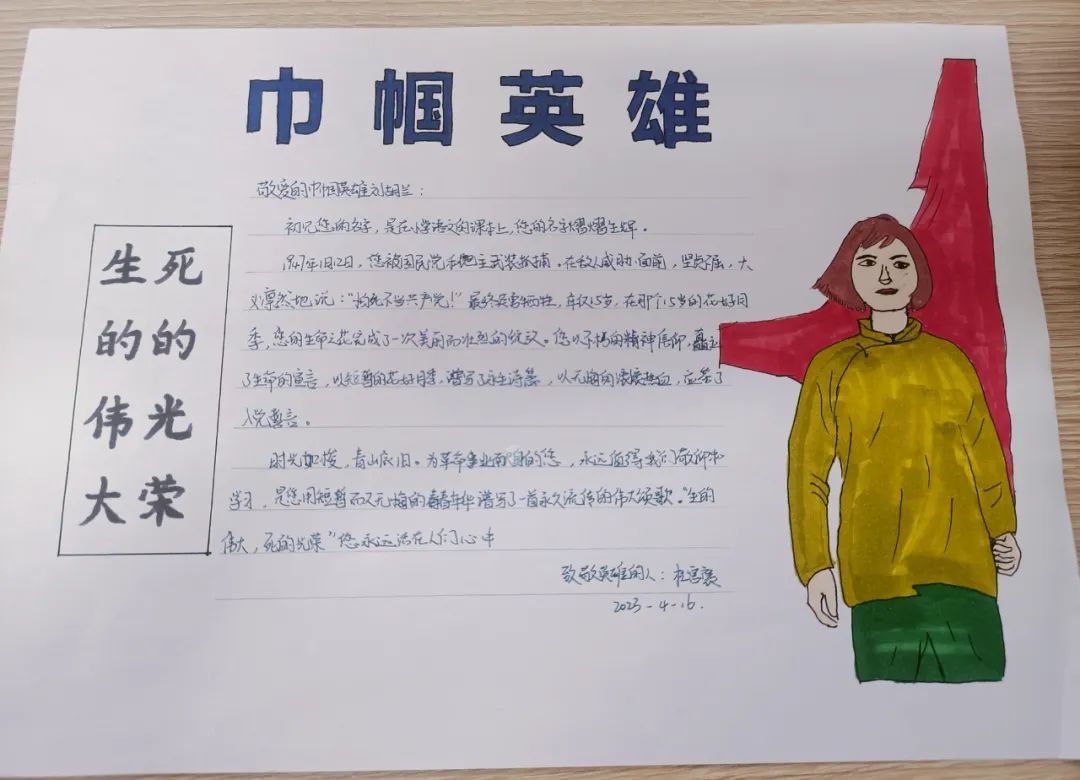 巾帼英雄
生的伟大
死的光荣
敬爱的巾帼英雄刘胡兰：
初见您的名字，是在小学语文的课本上，您的名字熠熠生辉。
1947年1月12日，您被国民党和地主武装抓捕。在敌人威胁面前，坚贞不屈，大
义凛然地说：“怕死不当共产党！”最终英勇牺牲，年仅15岁，在那个15岁的花好月
季，您的生命之花完成了一次美丽而壮烈的绽放。您以不朽的精神信仰，矗立
了生命的宣言，以短暂的花好月季，谱写了永生诗篇，以无悔的滚滚热血，应答了
入党誓言。
时光如梭，青山依旧。为革命事业而的您，永远值得我们敬仰和
学习，是您用短暂而又无悔的青春年华谱写了一首永久流传的伟大颂歌。“生的
伟大，死的光荣”您永远活在人们心中
致敬英雄的人：杜
2023-4-16.